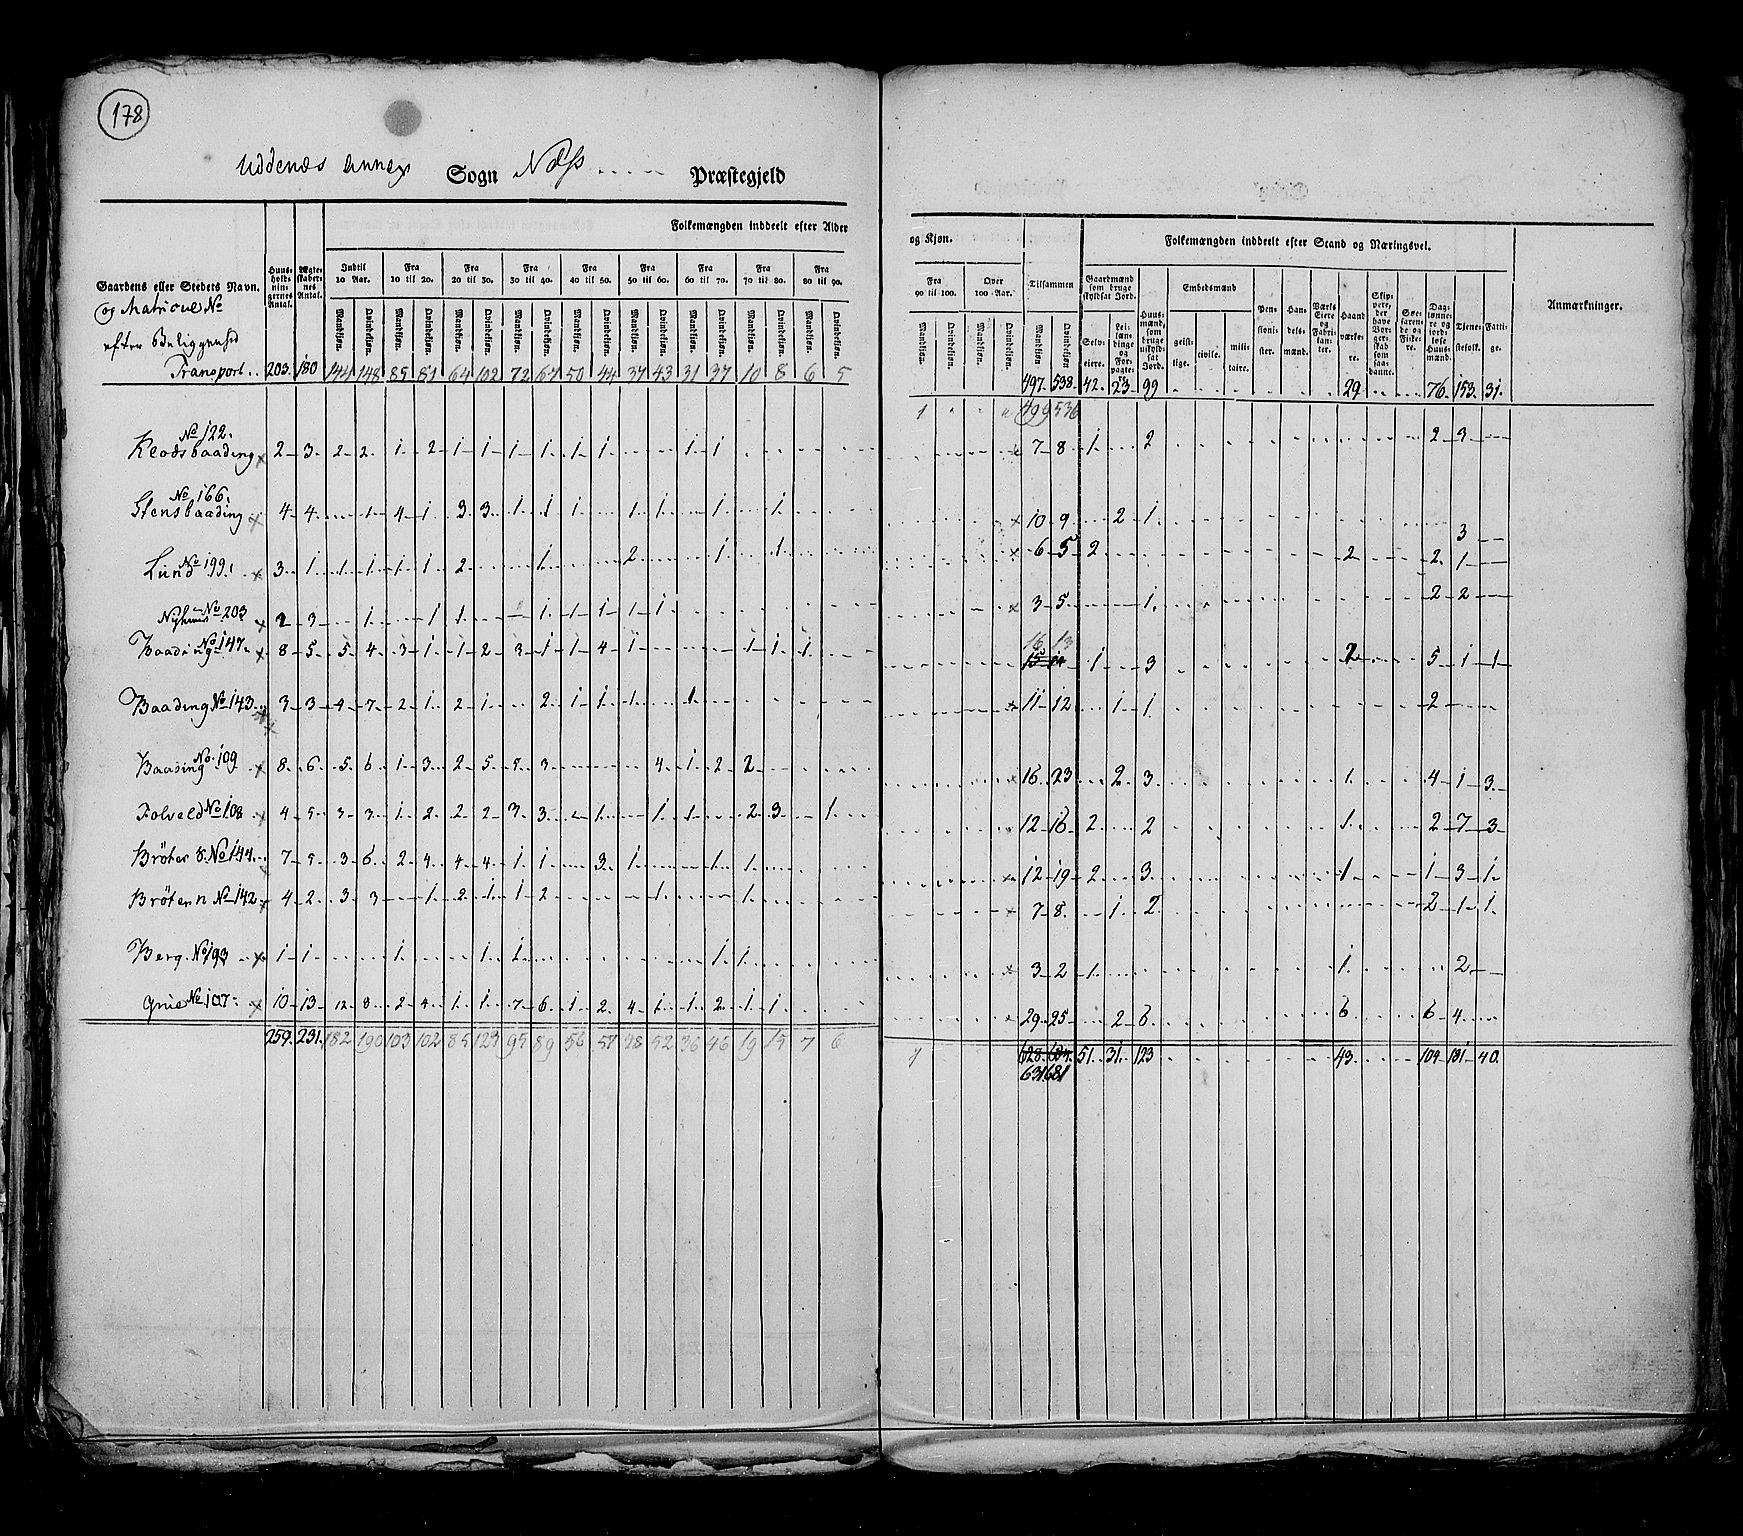 178
Uddenæs Annex Sogn Næss Præstegjeld
Folkemængden inddeelt efter Alder og Kjøn.
Folkemængden inddeelt efter Stand og Næringsvei.
Anmærkninger.
Gaardens eller Stedets Navn.
og Matricul No
efter Beliggenhed
Huusholdningernes Antal.
Ægteskabernes Antal.
Indtil 10 Aar.
Fra 10 til 20.
Fra 20 til 30.
Fra 30 til 40.
Fra 40 til 50.
Fra 50 til 60.
Fra 60 til 70.
Fra 70 til 80.
Fra 80 til 90.
Fra 90 til 100.
Over 100 Aar.
Tilsammen
Mandkjøn. Qvindekjøn.
Gaardmænd som bruge skyldsat Jord.
Selveiere.
Leilændinge og Forpagtere.
Huusmænd, som bruge uskyldsat Jord.
Embedsmænd
geistlige. civile. militaire.
Pensionister.
Handelsmænd.
Værks Eiere og Fabrikanter.
Haandværkere.
Skippere, der have Borgerskab som saadanne.
Søefarende og Fiskere.
Daglønnere og jordløse Huusmænd.
Tjenestefolk.
Fattige.
Transport . . 203. 180 144 148 85 81 64 102 72 67 50 44 37 43 31 37 10 8 6 5 497. 538. 42. 23. 99 29 76. 153. 31.
1 499 536
No 122.
Klodsbaading 2 3 2 2 1 2 1 1 1 1 1 1 1 1 7 8 1 2 2 3
No 166.
Stensbaading 4 4 1 4 1 3 3 1 1 1 1 1 1 1 10 9 2 1 3
Lund No 199. 3 1 1 1 1 1 2 1 2 1 1 6 5 2 2 2 1
No 203 2 3 1 1 1 1 1 1 1 1 3 5 1 2 2
16 13
Baading No 147. 8 5 5 4 3 1 1 2 3 1 1 4 1 1 1 1 15 14 1 3 2 5 1 1
Baading No 143. 3 3 4 7 2 1 2 1 2 1 1 1 1 11 12 1 1 2
Baading No. 109 8 6 5 6 1 3 2 5 5 3 4 1 2 2 16 23 2 3 1 4 1 3
Folveld No 108 4 5 3 3 1 2 2 2 3 3 1 1 1 2 3 1 12 16 2 2 1 2 7 3
Bröten S. No 144. 7 5 3 6 2 4 4 4 1 1 3 1 1 1 12 19 2 3 1 1 3 1
Bröten N No 142 4 2 3 3 1 2 1 1 2 1 1 7 8 1 2 2 1 1
Berg. No 193 1 1 1 1 1 1 1 3 2 1 1 2
Grue No 107 10 13 12 8 2 4 1 1 7 6 1 2 4 1 1 2 1 1 29 25 2 6 6 6 4
259. 231. 182 190 103 102 85 123 95 89 56 57 48 52 36 46 19 15 7 6 1 628. 51. 31. 123 43. 104 181 40.
631 681